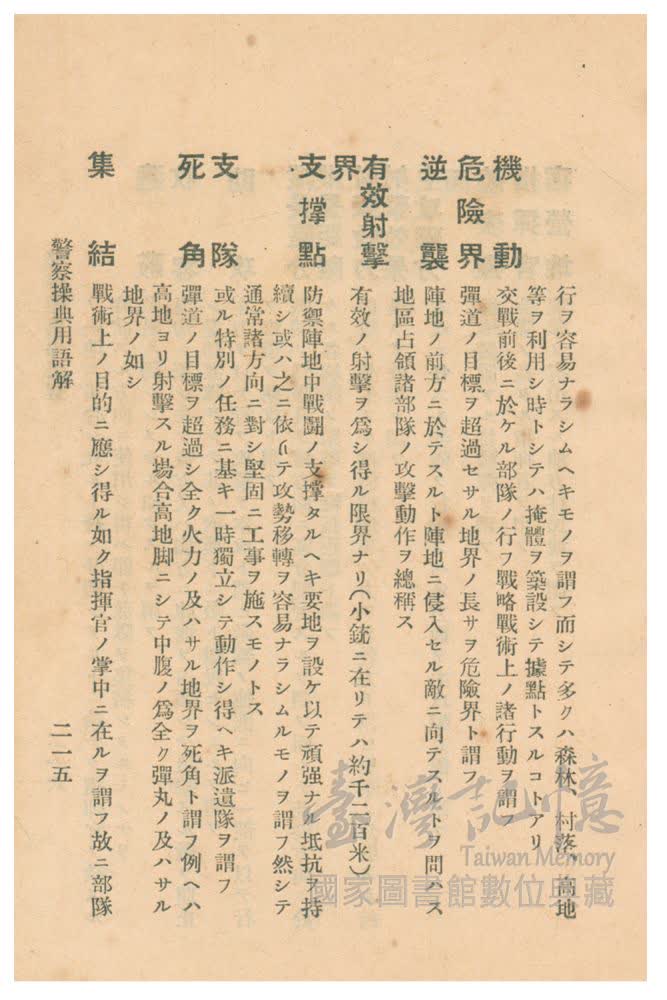 行ヲ容易ナラシムヘキモノヲ謂フ而シテ多クハ森林、村落、高地
等ヲ利用シ時トシテハ掩體ヲ築設シテ據點トスルコトアリ
機動 交戰前後ニ於ケル部隊ノ行フ戰略戰術上ノ諸行動ヲ謂フ
危險界 彈道ノ目標ヲ超過セサル地界ノ長サヲ危險界ト謂フ
逆襲 陣地ノ前方ニ於テスルト陣地ニ侵入セル敵ニ向テスルトヲ問ハス
地區占領諸部隊ノ攻擊動作ヲ總稱ス
有效射擊
界 有效ノ射擊ヲ爲シ得ル限界ナリ(小銃ニ在リテハ約千二百米)
支撐點 防禦陣地中戰鬪ノ支撐タルヘキ要地ヲ設ケ以テ頑强ナル抵抗ヲ持
續シ或ハ之ニ依リテ攻勢移轉ヲ容易ナラシムルモノヲ謂フ然シテ
通常諸方向ニ對シ堅固ニ工事ヲ施スモノトス
支隊 或ル特別ノ任務ニ基キ一時獨立シテ動作シ得ヘキ派遣隊ヲ謂フ
死角 彈道ノ目標ヲ超過シ全ク火力ノ及ハサル地界ヲ死角ト謂フ例ヘハ
高地ヨリ射擊スル場合高地脚ニシテ中腹ノ爲全ク彈丸ノ及ハサル
地界ノ如シ
集結 戰術上ノ目的ニ應シ得ル如ク指揮官ノ掌中ニ在ルヲ謂フ故ニ部隊
警察操典用語解 二一五
臺灣記憶
Taiwan Memory
國家圖書館數位典藏